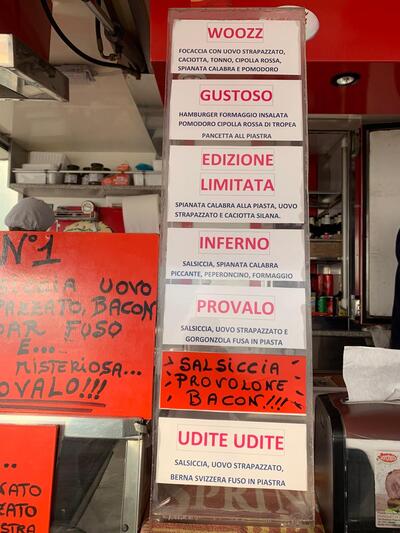 WOOZZ
FOCACCIA CON UOVO STRAPAZZATO,
CACIOTTA, TONNO, CIPOLLA ROSSA,
SPIANATA CALABRA E POMODORO
GUSTOSO
HAMBURGER FORMAGGIO INSALATA
POMODORO CIPOLLA ROSSA DI TROPEA
PANCETTA ALL PIASTRA
EDIZIONE
LIMITATA
SPIANATA CALABRA ALLA PIASTA, UOVO
STRAPAZZATO E CACIOTTA SILANA.
INFERNO
SALSICCIA, SPIANATA CALABRA
PICCANTE, PEPERONCINO, FORMAGGIO
PROVALO
SALSICCIA, UOVO STRAPAZZATO E
GORGONZOLA FUSA IN PIASTA
SALSICCIA
PROVOLONE
BACON!!!
UDITE UDITE
SALSICCIA, UOVO STRAPAZZATO,
BERNA SVIZZERA FUSO IN PIASTRA
N°1
UOVO
PAZZATO, BACON
DAR FUSO
E...
MISTERIOSA...
OVALO!!!
...